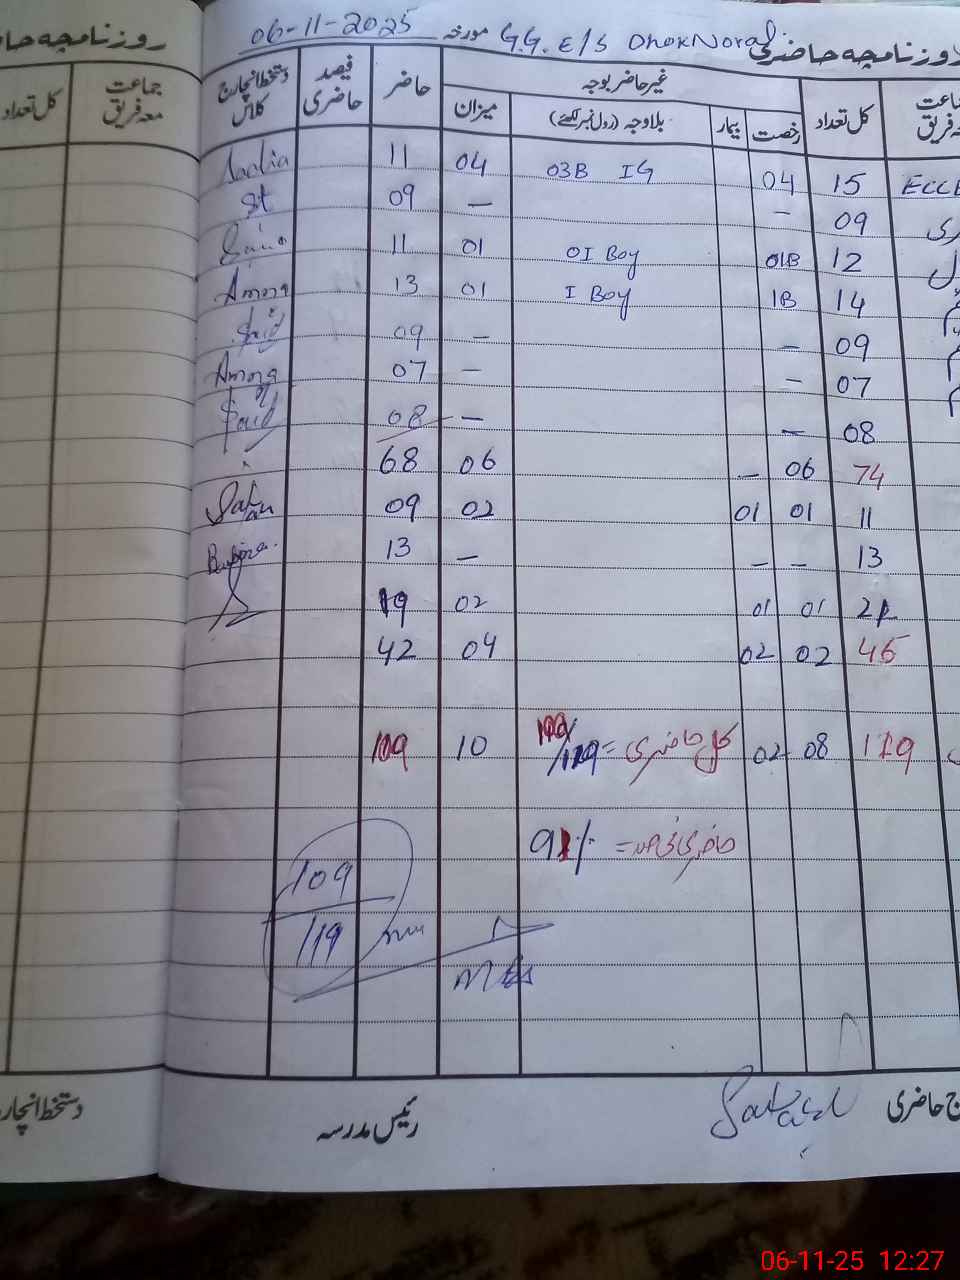 روزنامچہ حاضری G.G. E/S Dhok Noral مورخہ 06-11-2025
کل تعداد رخصت بیمار غیر حاضر بوجہ بلاوجہ (رول نمبر لکھئے) میزان حاضر فیصد حاضری دستخط انچارج کلاس
جماعت معہ فریق کل تعداد
15 04 03B IG 04 11 Saadia
09 - — 09 St
12 01B 01 Boy 01 11
14 1B 1 Boy 01 13 Amna
09 - - 09
07 - - 07 Amna
08 - - 08
74 06 - 06 68
11 01 01 02 09
13 - - - 13
21 01 01 02 19
46 02 02 04 42
119 08 02 کل حاضری = 109/119 10 109
حاضری فی صد = 91%
109
119
رئیس مدرسہ
دستخط انچارج
06-11-25 12:27